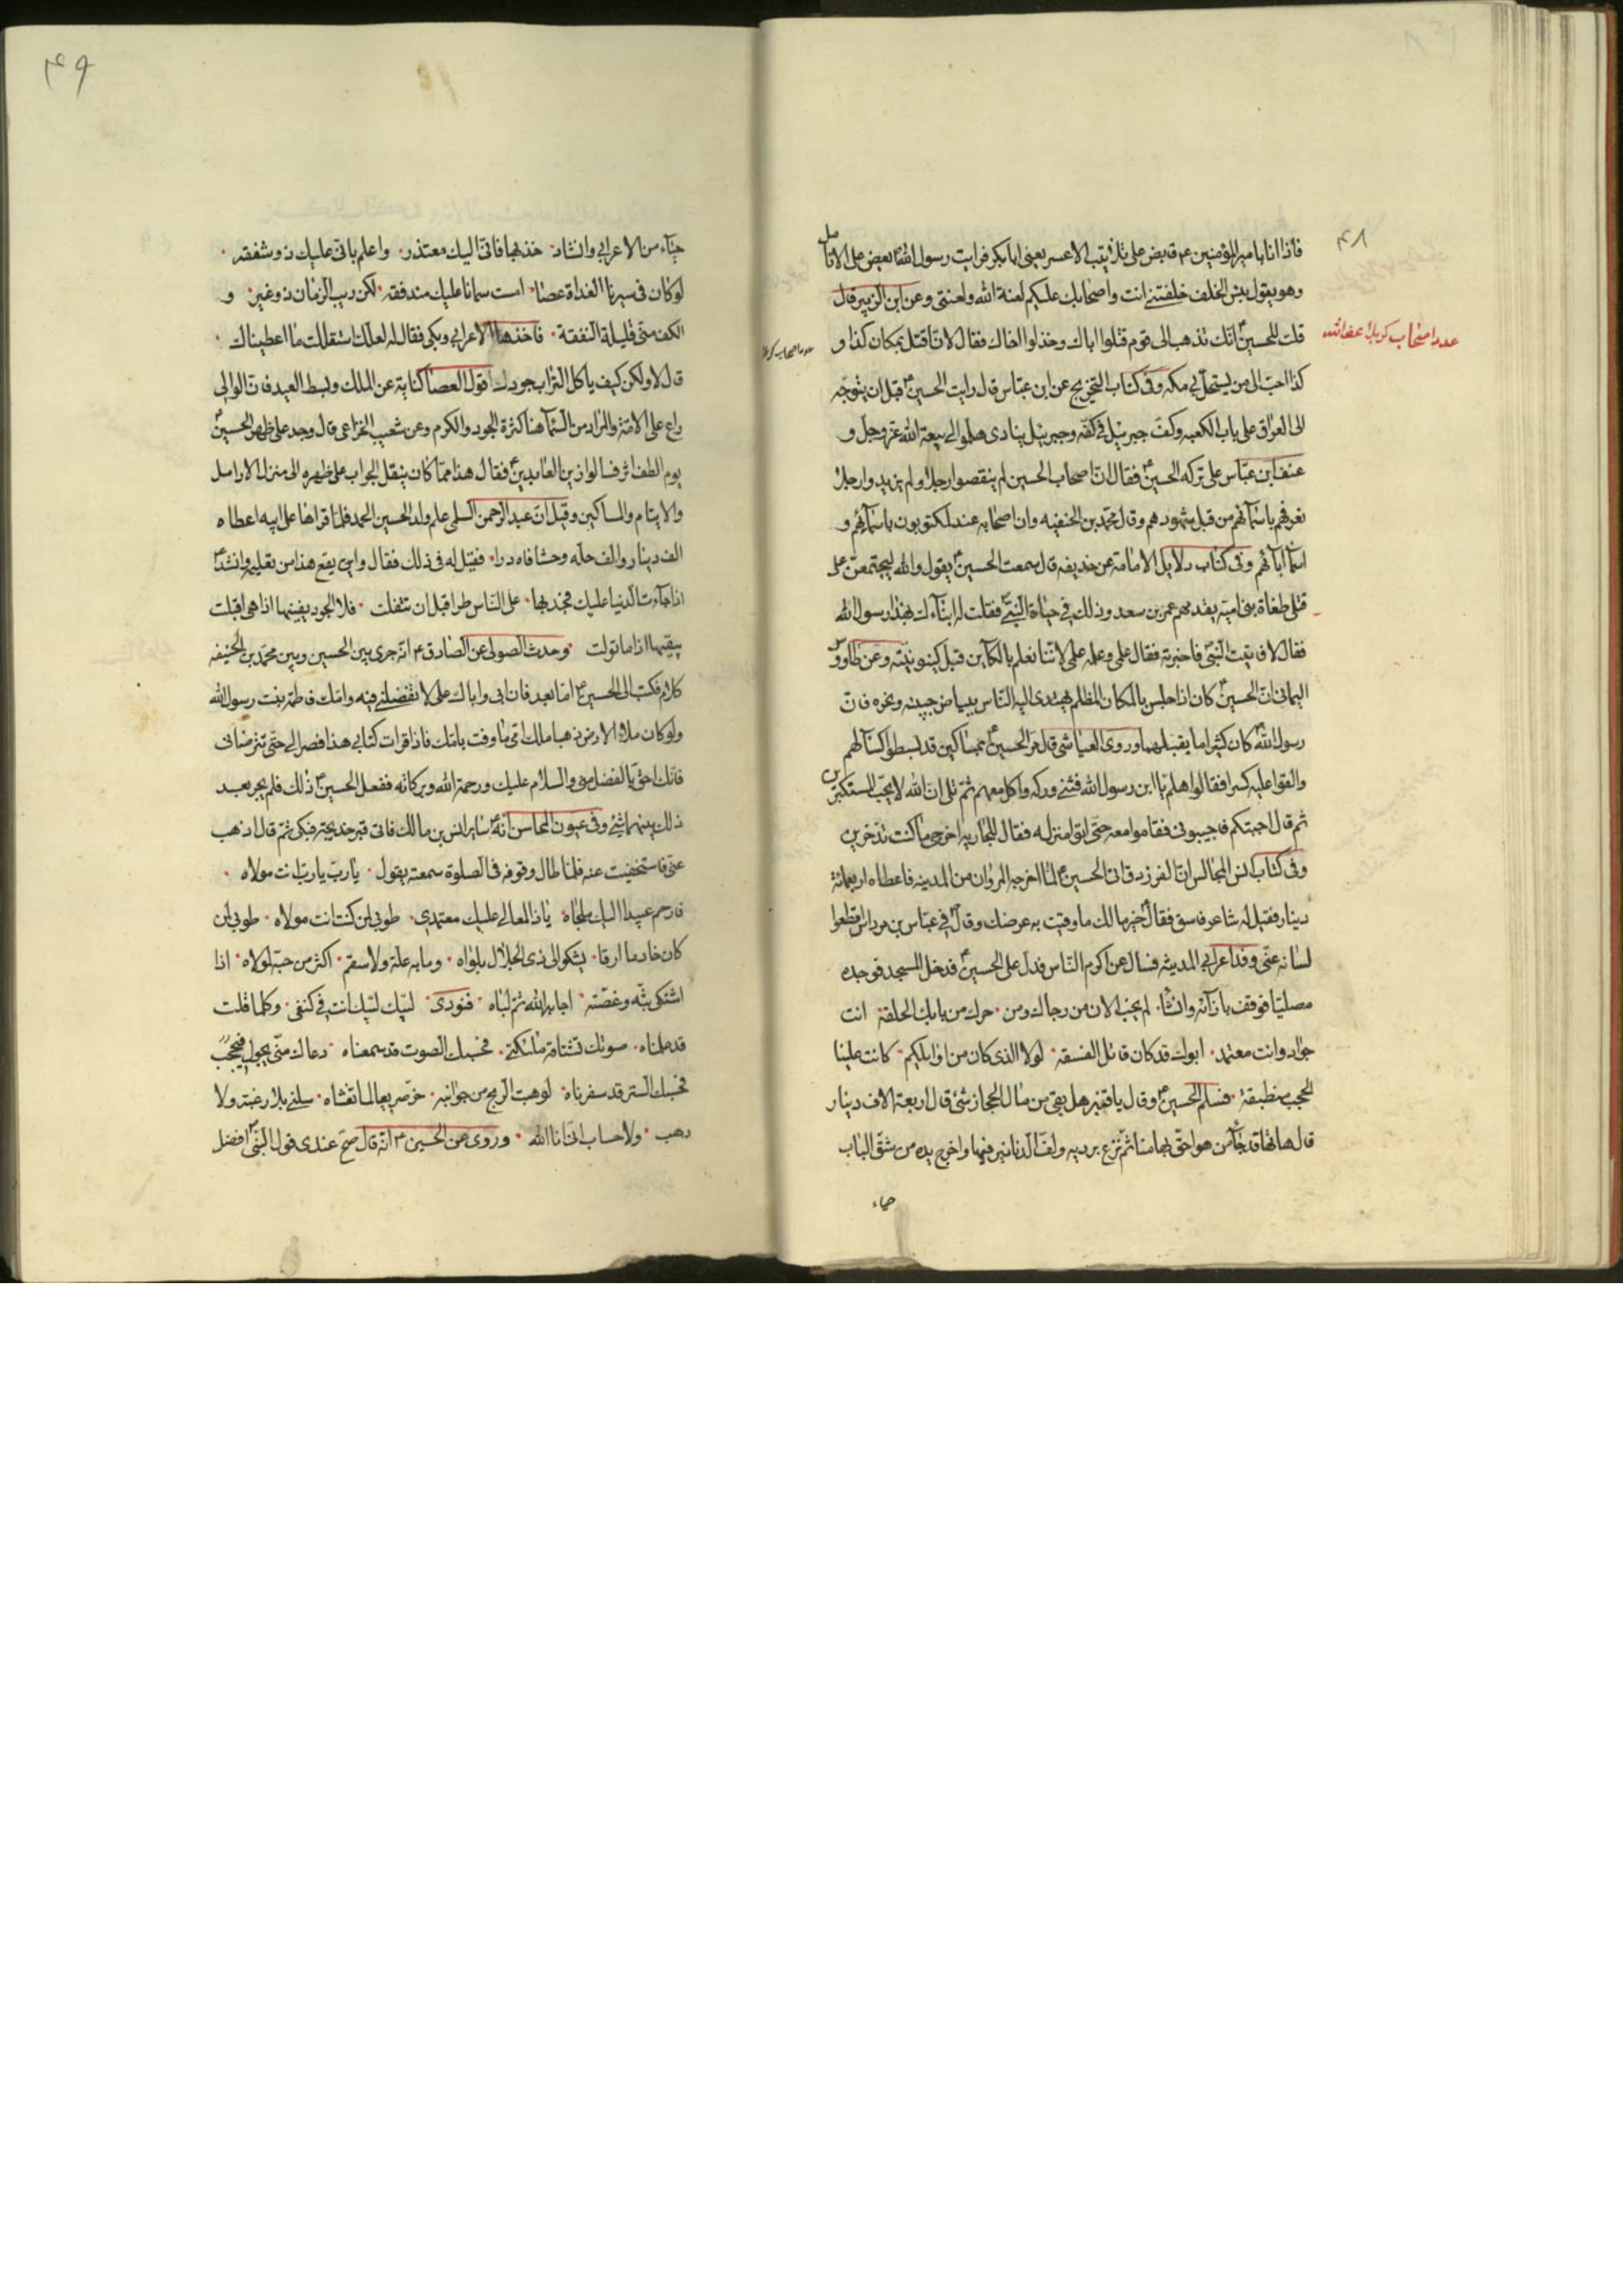 ۴۸
فاذا انا بامير المؤمنين ع قابض على تلابيب الاعسر يعنى ابا بكر فرايت رسول الله يعض على الانامل
وهو يقول بئس الخلف خلفتنى انت واصحابك عليكم لعنة الله ولعنتى وعن ابن الزبير قال
قلت للحسين انك تذهب الى قوم قتلوا اباك وخذلوا اخاك فقال لان اقتل بمكان كذا و
عدد اصحاب كربلا
كذا احب الى من يستحل بى مكه وفى كتاب التخريج عن ابن عباس قال رايت الحسين قبل ان يتوجه
الى العراق على باب الكعبه وكف جبرئيل فى كفه وجبرئيل ينادى هلموا الى بيعة الله عز وجل و
عنف ابن عباس على تركه الحسين فقال ان اصحاب الحسين لم ينقصوا رجلا ولم يزيدوا رجلا
نعرفهم باسمائهم من قبل شهودهم وقال محمد بن الحنفيه وان اصحابه عندنا لمكتوبون باسمائهم و
اسماء ابائهم وفى كتاب دلايل الامامة عن حذيفه قال سمعت الحسين يقول والله ليجتمعن على
قتلى طغاة بنى اميه يقدمهم عمر بن سعد وذلك فى حياة النبى فقلت له انباءك بهذا رسول الله
فقال لا فاتيت النبى فاخبرته فقال علمى وعلمه علمى لاننا نعلم بالكاين قبل كينونيته وعن طاووس
اليمانى ان الحسين كان اذا جلس بالمكان المظلم يهتدى اليه الناس ببياض جبينه ونحره فان
رسول الله كان كثيرا ما يقبلهما وروى العياشى قال مر الحسين بمساكين قد بسطوا كساء لهم
والقوا عليه كسرا فقالوا هلم يا ابن رسول الله فثنى وركه واكل معهم ثم تلى ان الله لا يحب المستكبرين
ثم قال اجبتكم فاجيبونى فقاموا معه حتى اتوا منزله فقال للجاريه اخرجى ما كنت تدخرين
وفى كتاب انس المجالس ان الفرزدق اتى الحسين لما اخرجه المروان من المدينه فاعطاه اربعمائة
دينار فقيل له شاعر فاسق فقال خير مالك ما وقيت به عرضك وقال فى عباس بن مرداس اقطعوا
لسانه عنى وفد اعرابى المدينه فسال عن اكرم الناس فدل على الحسين فدخل المسجد فوجده
مصليا فوقف بازائه وانشا لم يخب الان من رجاك ومن حرك من بابك الحلقة انت
جواد وانت معتمد ابوك قد كان قاتل الفسقه لولا الذى كان من اوايلكم كانت علينا
الجحيم منطبقة فسلم الحسين وقال يا قنبر هل بقى من مال الحجاز شئ قال اربعة الاف دينار
قال هاتها قد جاء من هو احق بها منا ثم نزع برديه ولف الدنانير فيها واخرج يده من شق الباب
حياء
۴۹
حياء من الاعرابى وانشاد خذها فانى اليك معتذر واعلم بانى عليك ذو شفقه
لو كان فى سيرنا الغداة عصا امست سمانا عليك مندفقه لكن ريب الزمان ذو غير و
الكف منى قليلة النفقة فاخذها الاعرابى وبكى فقال له لعلك استقللت ما اعطيناك
قال لا ولكن كيف ياكل التراب جودك اقول العصا كناية عن الملك وبسط اليد فان الوالى
راع على الامة والمراد من السماء هنا كثرة الجود والكرم وعن شعيب الخزاعى قال وجد على ظهر الحسين
يوم الطف اثر فسالوا زين العابدين فقال هذا مما كان ينقل الجراب على ظهره الى منزل الارامل
والايتام والمساكين وقيل ان عبد الرحمن السلمى علم ولد الحسين الحمد فلما قراها على ابيه اعطاه
الف دينار والف حله وحشا فاه درا فقيل له فى ذلك فقال واين يقع هذا من تعليمه وانشد
اذا جاءت الدنيا عليك فجد بها على الناس طرا قبل ان تتفلت فلا الجود يفنيها اذا هى اقبلت
يبقيها اذا ما تولت وحدث الصولى عن الصادق ع انه جرى بين الحسين وبين محمد بن الحنيفه
كلام فكتب الى الحسين اما بعد فان ابى واباك على لا تفضلنى فيه وامك فاطمه بنت رسول الله
ولو كان ملاء الارض ذهبا ملك امى ما وفت بامك فاذا قرات كتابى هذا فصر الى حتى تترضانى
فانك احق بالفضل منى والسلام عليك ورحمة الله وبركاته ففعل الحسين ذلك فلم يجر بعد
ذلك بينهما شئ وفى عيون المحاسن انه ساير انس بن مالك فاتى قبر خديجة فبكى ثم قال اذهب
عنى فاستخفيت عنه فلما طال وقوفه فى الصلوة سمعته يقول يا رب يا رب انت مولاه
فارحم عبيدا اليك ملجاه يا ذا المعالى عليك معتمدى طوبى لمن كنت انت مولاه طوبى لمن
كان خادما ارقا يشكو الى ذى الجلال بلواه وما به علة ولا سقم اكثر من حبه لمولاه اذا
اشتكى بثه وغصته اجابه الله ثم لباه فنودى لبيك لبيك انت فى كنفى وكلما قلت
قد علمناه صوتك تشتاقه ملئكتى فحسبك الصوت قد سمعناه دعاك منى يجول فى حجب
فحسبك الستر قد سفرناه لو هبت الريح من جوانبه خر صريعا لما تغشاه سلنى بلا رغبة ولا
رهب ولا حساب انى انا الله وروى عن الحسين ع انه قال صح عندى قول النبى افضل